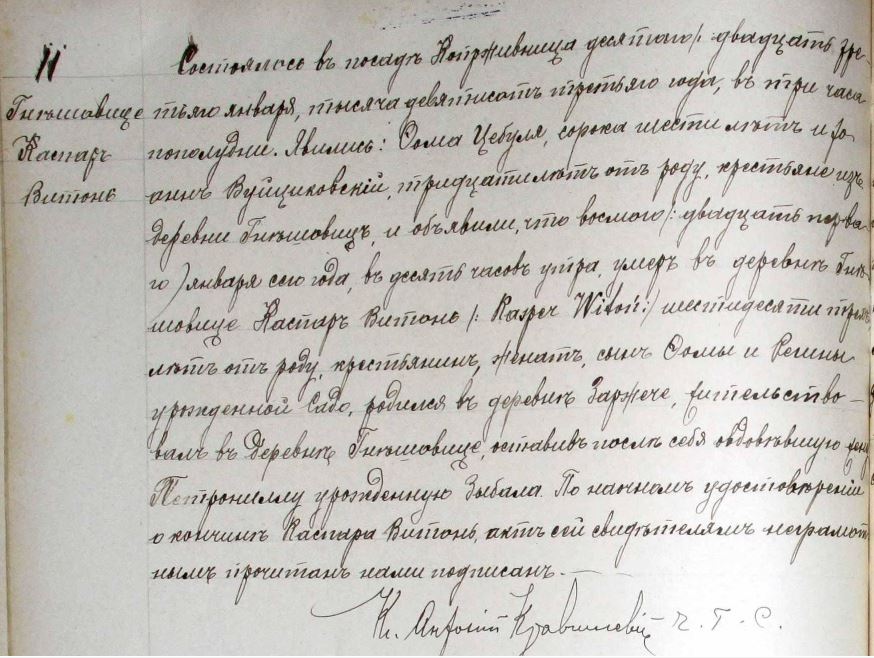 11
Гнѣшовице
Каспаръ
Витонь
Состоялось въ посадѣ Копрживница десятаго /: двадцать тре-
тьяго января, тысяча девятисотъ третьяго года, въ три часа
пополудни. Явились: Ѳома Цебуля, сорока шести лѣтъ и Іо-
аннъ Вуйциковскій, тридцати лѣтъ отъ роду, крестьяне изъ
деревни Гнѣшовицъ, и объявили, что восмого /: двадцать перва
го) января сего года, въ десять часовъ утра, умеръ въ деревнѣ Гнѣ-
шовице Каспаръ Витонь /: Kasper Witoń :/ шестидесяти трехъ
лѣтъ отъ роду, крестьянинъ, женатъ, сынъ Ѳомы и Регины
урожденной Садо, родился въ деревнѣ Заржече, жительство-
валъ въ деревнѣ Гнѣшовице, оставивъ послѣ себя овдовѣвшую жену
Петрониллу урожденную Зыбала. По наочномъ удостовѣреніи
о кончинѣ Каспара Витонь, актъ сей свидѣтелямъ неграмот-
нымъ прочитанъ нами подписанъ. —
Кс. Антоній